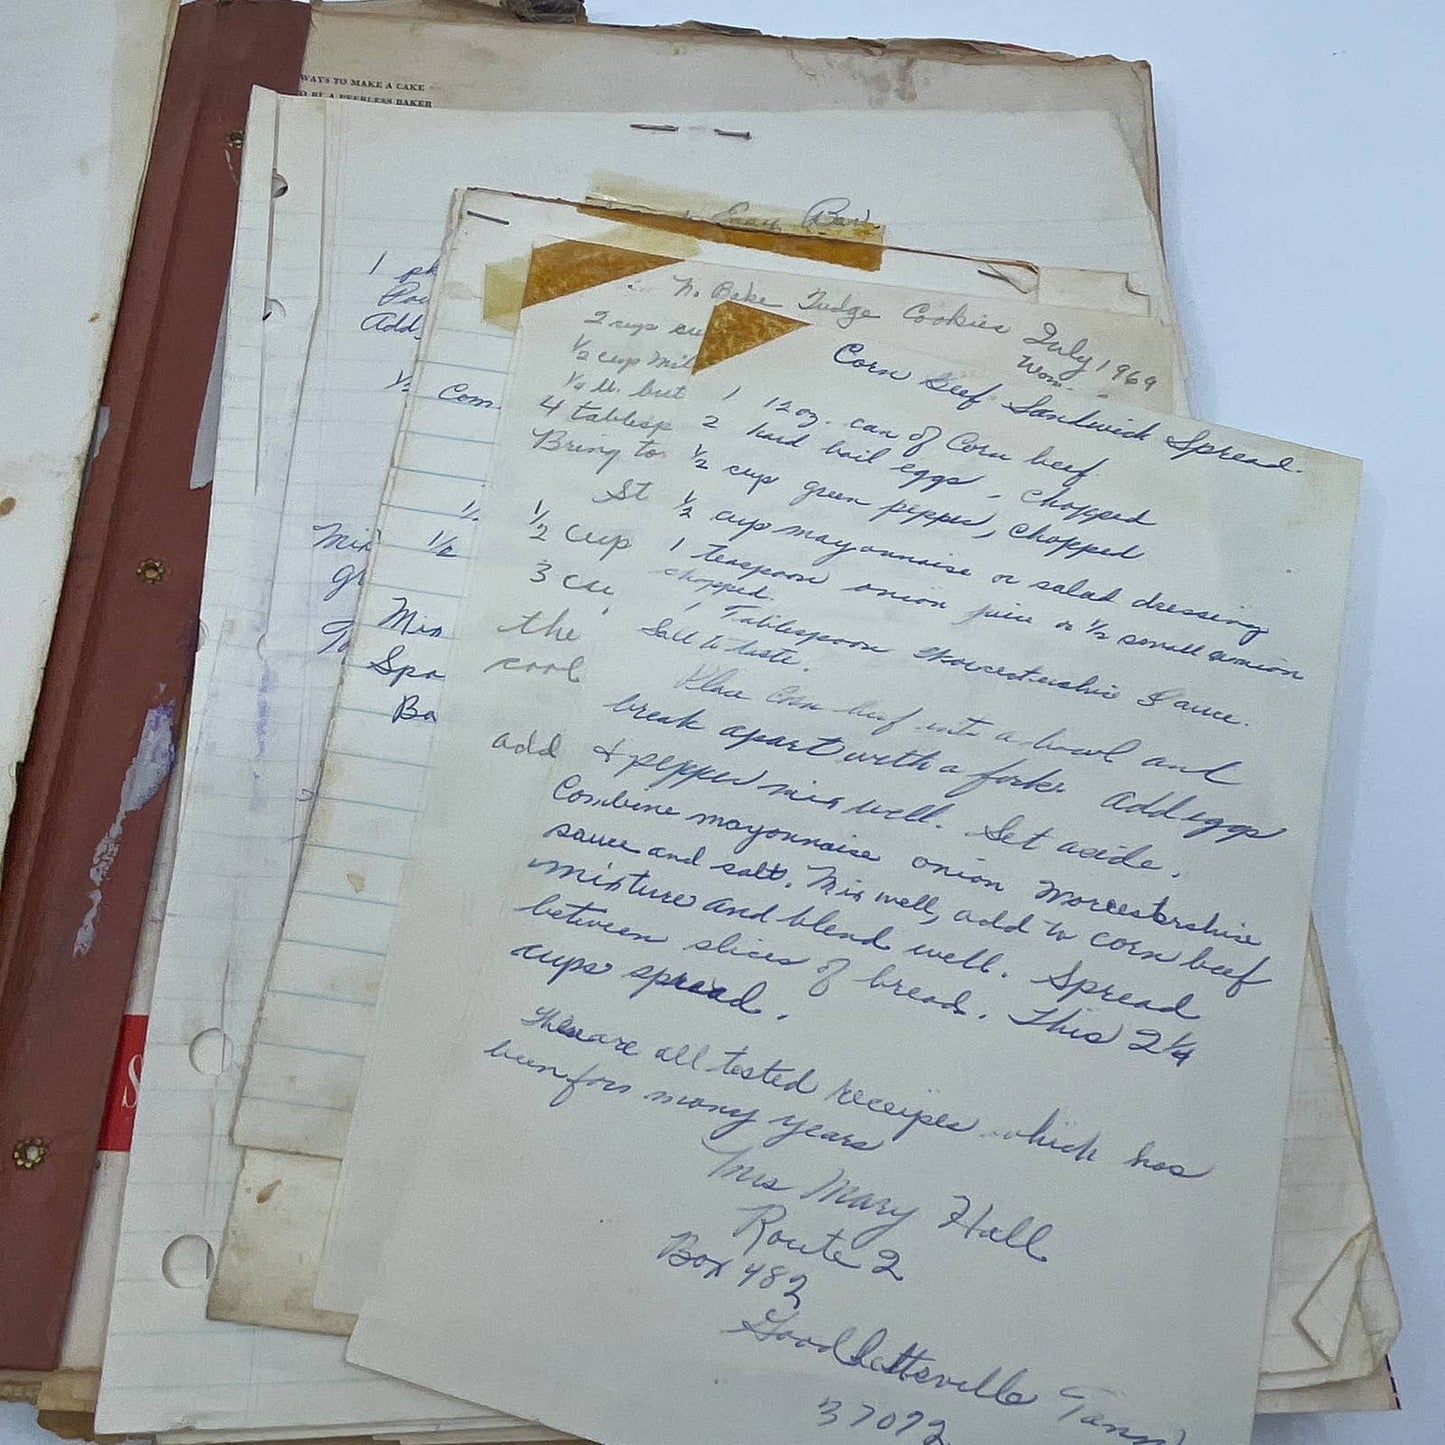 WAYS TO MAKE A CAKE
BE A PEERLESS BAKER
1 pk
Add
1/2
Mix
Com
1/2
Mix
Spo
Ba
No Bake Fudge Cookies July 1969
2 cups
1/2 cup mil
1/4 lb. but
4 tablesp
Bring to
St
1/2 cup
3 cu
the
cool
add
Corn Beef Sandwich Spread.
1 12 oz. can of Corn beef
2 hard boil eggs - chopped
1/2 cup green pepper, chopped
1/2 cup mayonnaise or salad dressing
1 teaspoon onion juice or 1/2 small onion
chopped.
1 Tablespoon Worcestershire Sauce.
Salt to taste.
Place Corn beef into a bowl and
break apart with a fork. Add eggs
& pepper mix well. Set aside.
Combine mayonnaise onion Worcestershire
sauce and salt. Mix well, add to corn beef
mixture and blend well. Spread
between slices of bread. This 2 1/4
cups spread.
These are all tested receipes which has
been for many years
Mrs Mary Hall
Route 2
Box 482
Goodlettsville Tenn
37072